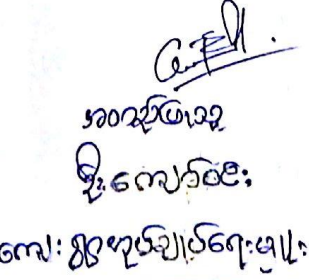 အတည်ပြုသူ
ဦးကျော်ဝင်း
ကျေးရွာအုပ်ချုပ်ရေးမှူး